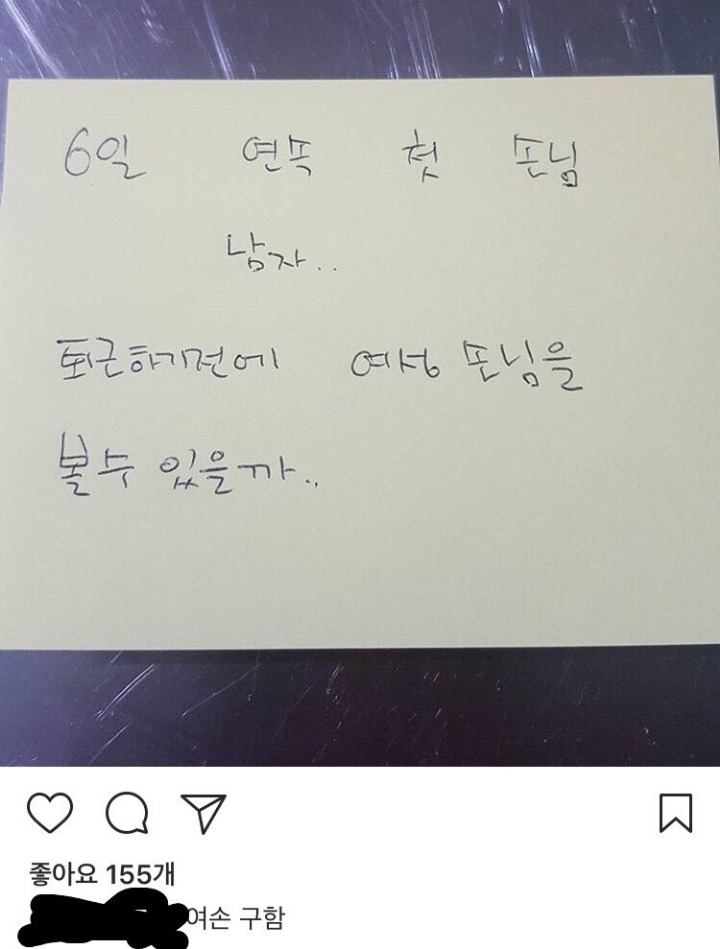 6일 연속 첫 손님
남자..
퇴근하기전에 여성 손님을
볼수 있을까..
좋아요 155개
여손 구함